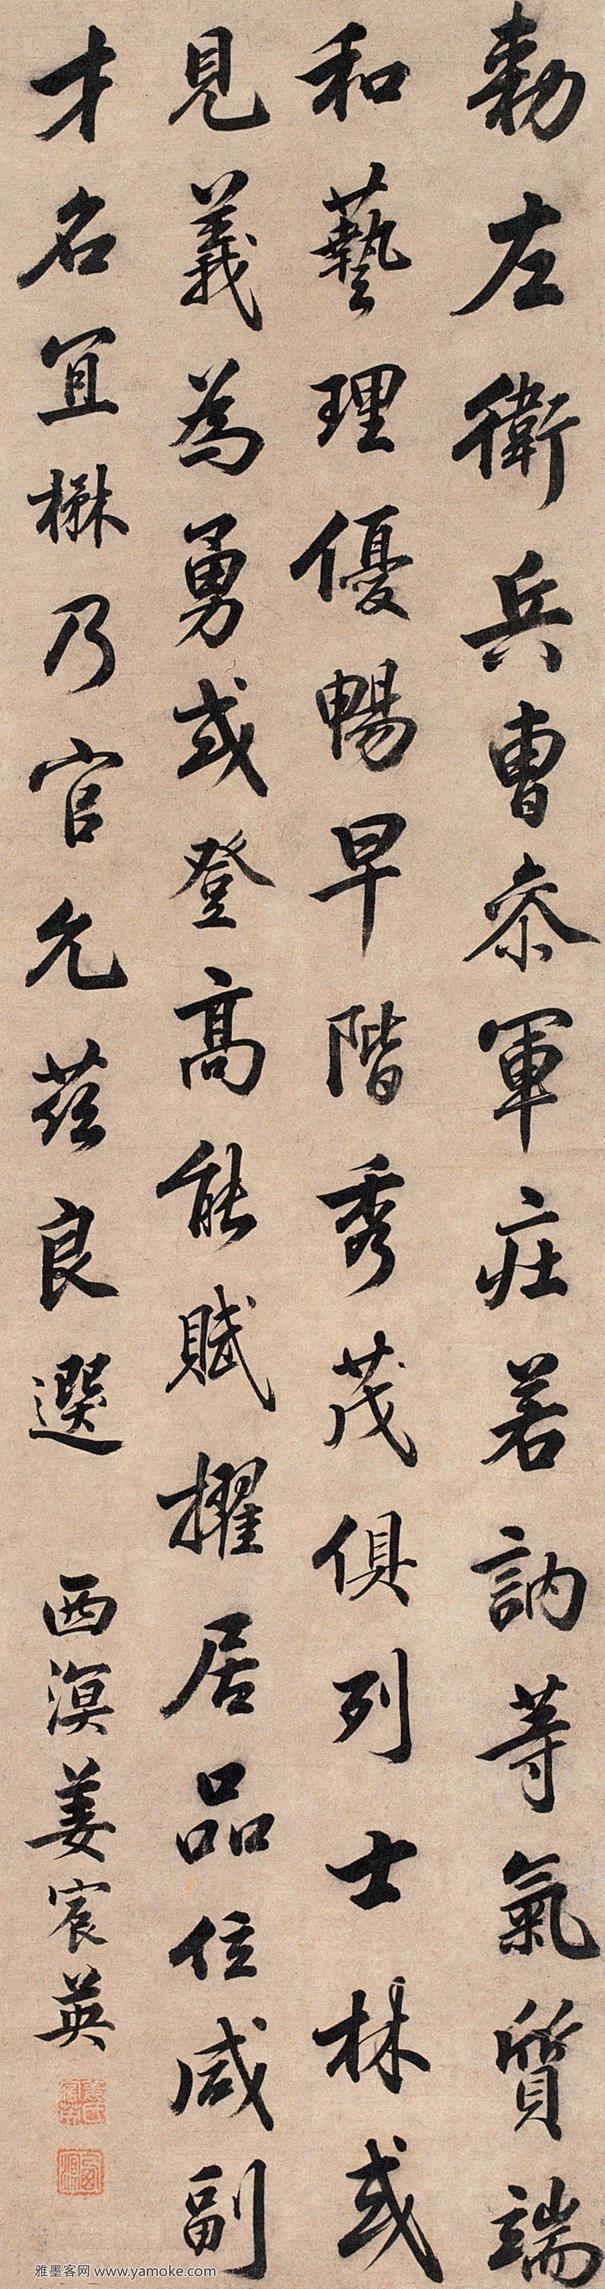 勅左衛兵曹叅軍莊若訥等氣質端
和藝理優暢早階秀茂俱列士林或
見義為勇或登高能賦擢居品位咸副
才名宜楙乃官允茲良選
西溟姜宸英
雅墨客网 www.yamoke.com